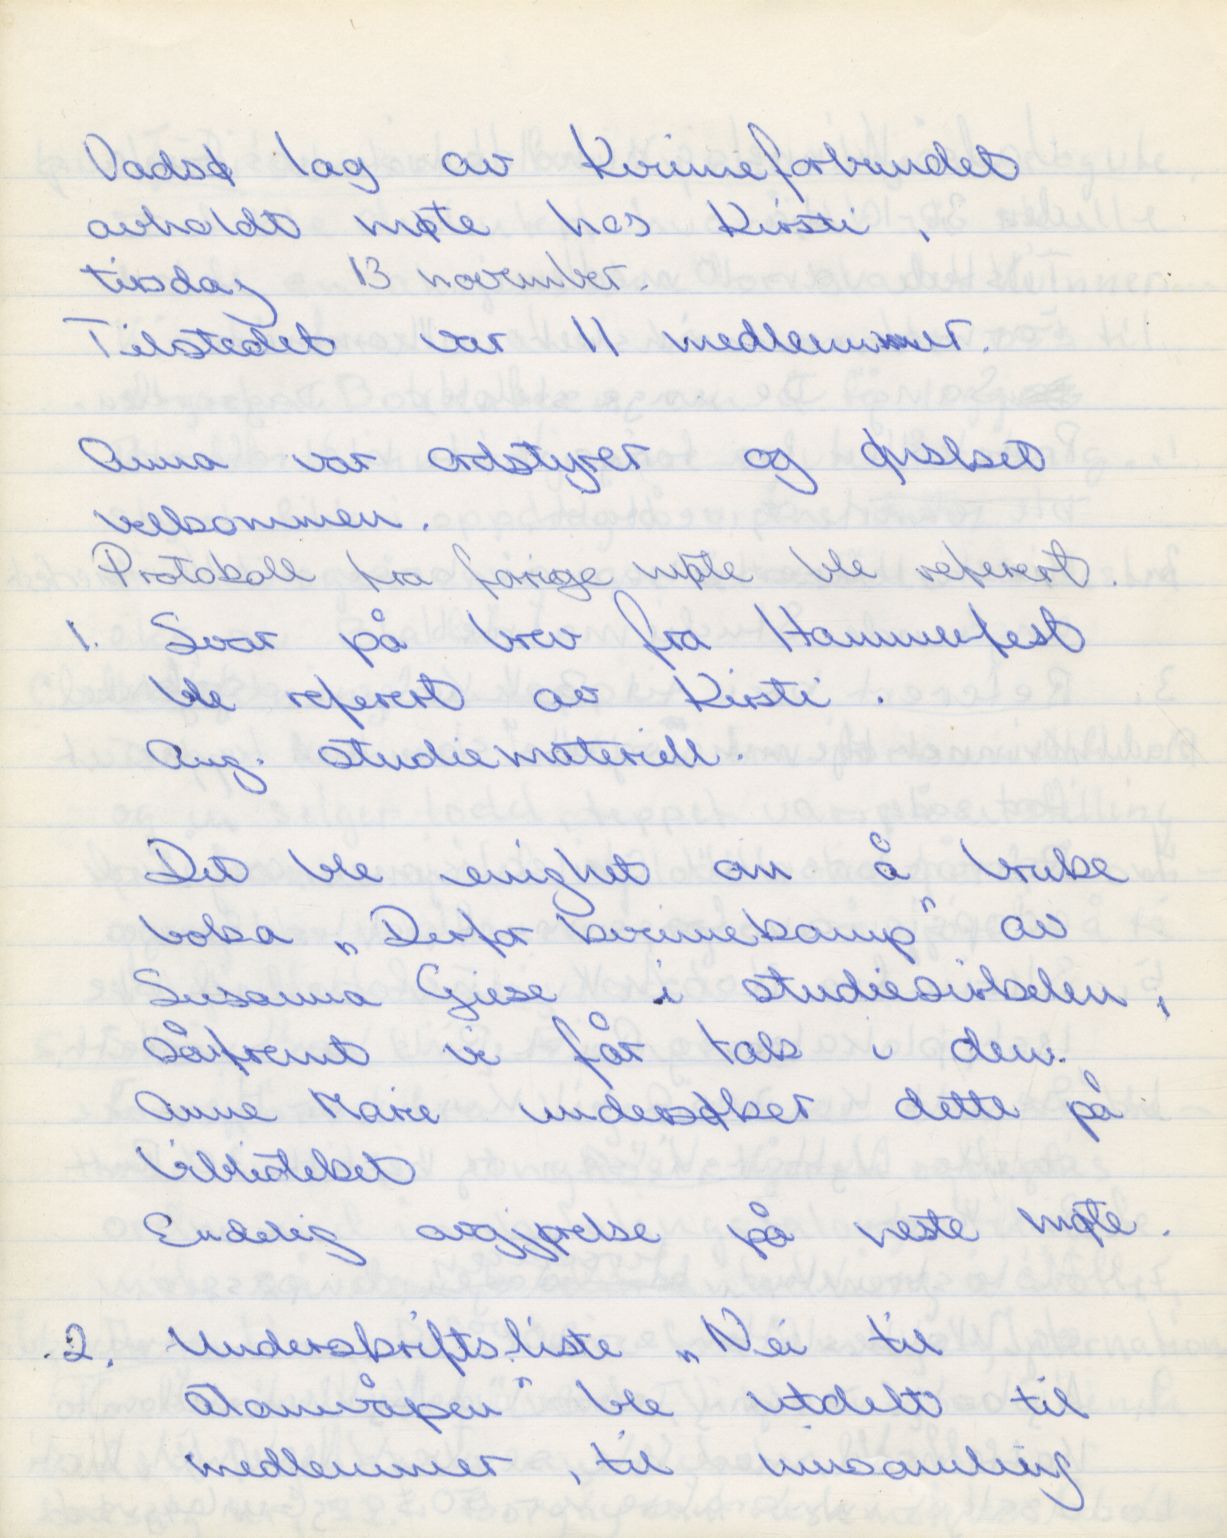 Vadsø lag av Kvinneforbundet
avholdt møte hos Kirsti,
tirsdag 13 november.
Tilstedet var 11 medlemmer.
Anna var ordstyrer og ønsket
velkommen.
Protokoll fra forrige møte ble referert.
1. Svar på brev fra Hammerfest
ble referert av Kirsti.
Ang. studiemateriell.
Det ble enighet om å bruke
boka „Derfor kvinnekamp" av
Susanna Giese i studiesirkelen,
såfremt vi får tak i den.
Anne Marie undersøker dette på
biblioteket
Endelig avgjørelse på neste møte.
2. Underskriftsliste „Nei til
atomvåpen" ble utdelt til
medlemmer, til innsamling